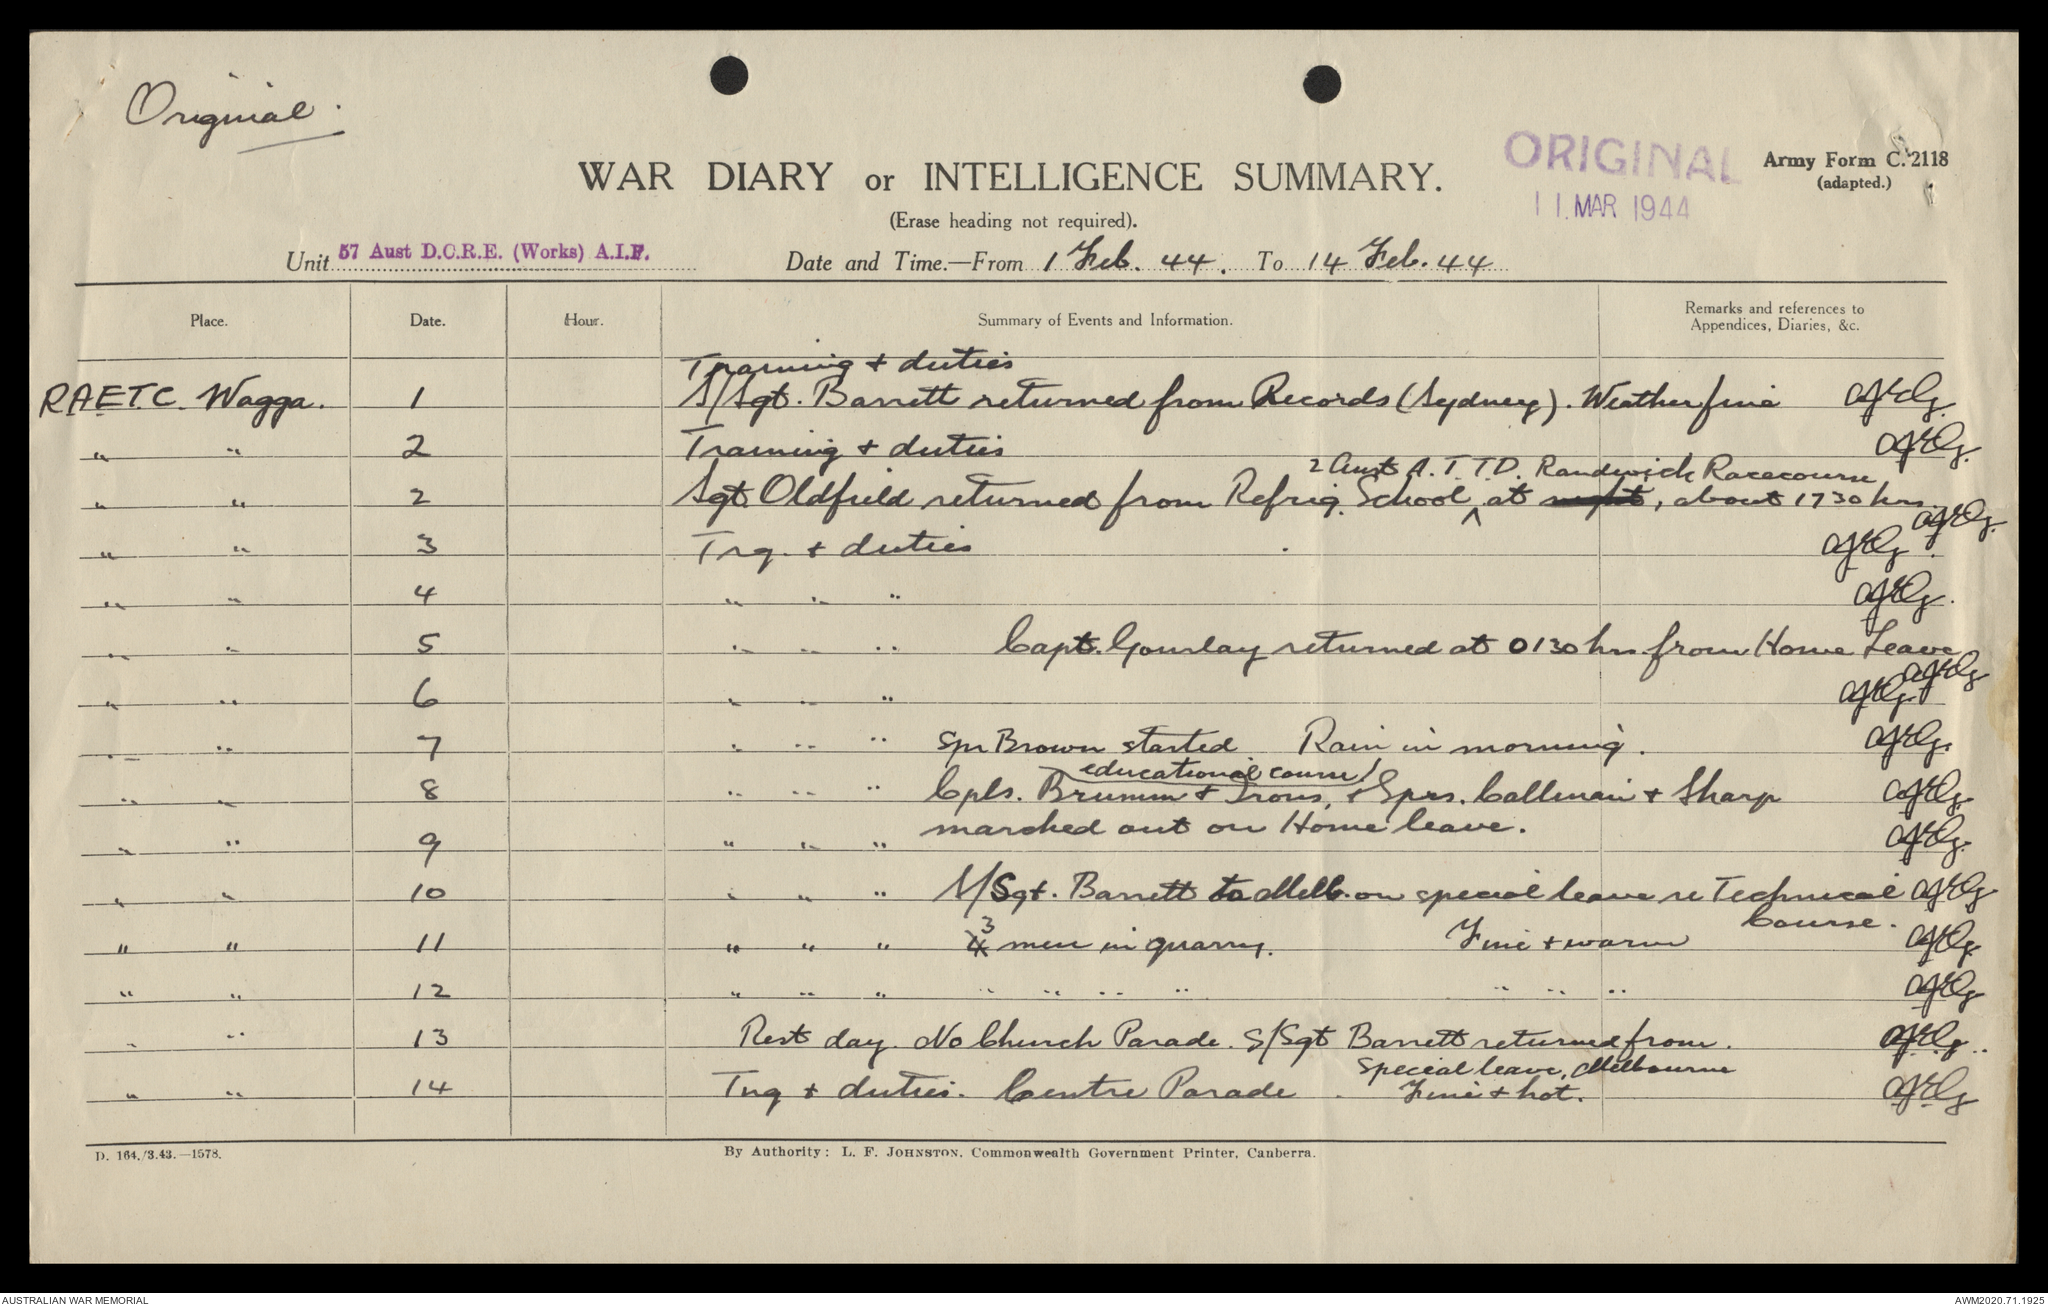 Original.
ORIGINAL
11 MAR 1944
Army Form C. 2118
(adapted.)
WAR DIARY or INTELLIGENCE SUMMARY.
(Erase heading not required).
Unit 57 Aust D.C.R.E. (Works) A.I.F. Date and Time.—From 1 Feb. 44. To 14 Feb. 44
Place. Date. Hour. Summary of Events and Information. Remarks and references to
Appendices, Diaries, &c.
Training + duties
RAETC. Wagga. 1 S/Sgt. Barrett returned from Records (Sydney). Weather fine
" " 2 Training + duties
2 Aust A.T.T.D. Randwich Racecourse
" " 2 Sgt. Oldfield returned from Refrig. School ^ at night, about 1730 hrs.
" " 3 Trg. + duties
" " 4 " " "
" " 5 " " " Capt. Gourlay returned at 0130 hrs from Home Leave
" " 6 " " "
" " 7 " " " Spr Brown started Rain in morning.
educational course
" " 8 " " " Cpls. Brumm + Irons, + Sprs. Callinan + Sharp
marched out on Home leave.
" " 9 " " "
" " 10 " " " S/Sgt. Barrett to Melb. on special leave re Technical
Course.
" " 11 " " " 3 men in quarry. Fine + warm
" " 12 " " " " " " " " " "
" " 13 Rest day. No Church Parade. S/Sgt Barrett returned from.
Special leave, Melbourne
" " 14 Tng + duties. Centre Parade. Fine + hot.
D. 164./3.43.—1578. By Authority: L. F. JOHNSTON, Commonwealth Government Printer, Canberra.
AUSTRALIAN WAR MEMORIAL AWM2020.71.1925